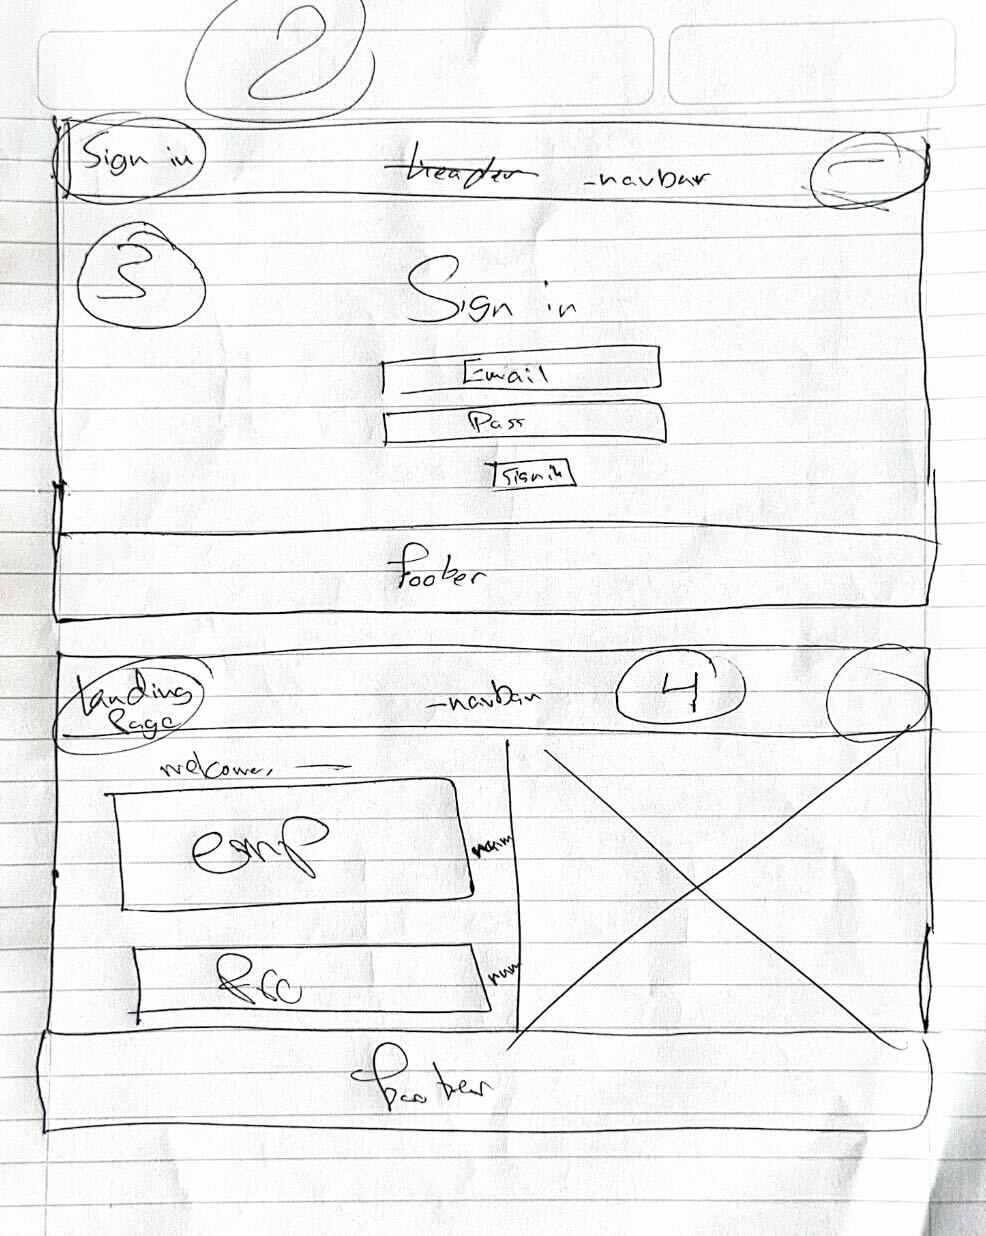 2
Sign in
header -navbar
3
Sign in
Email
Pass
Sign in
footer
Landing
Page
-navbar
4
welcome,
emp
num
num
footer